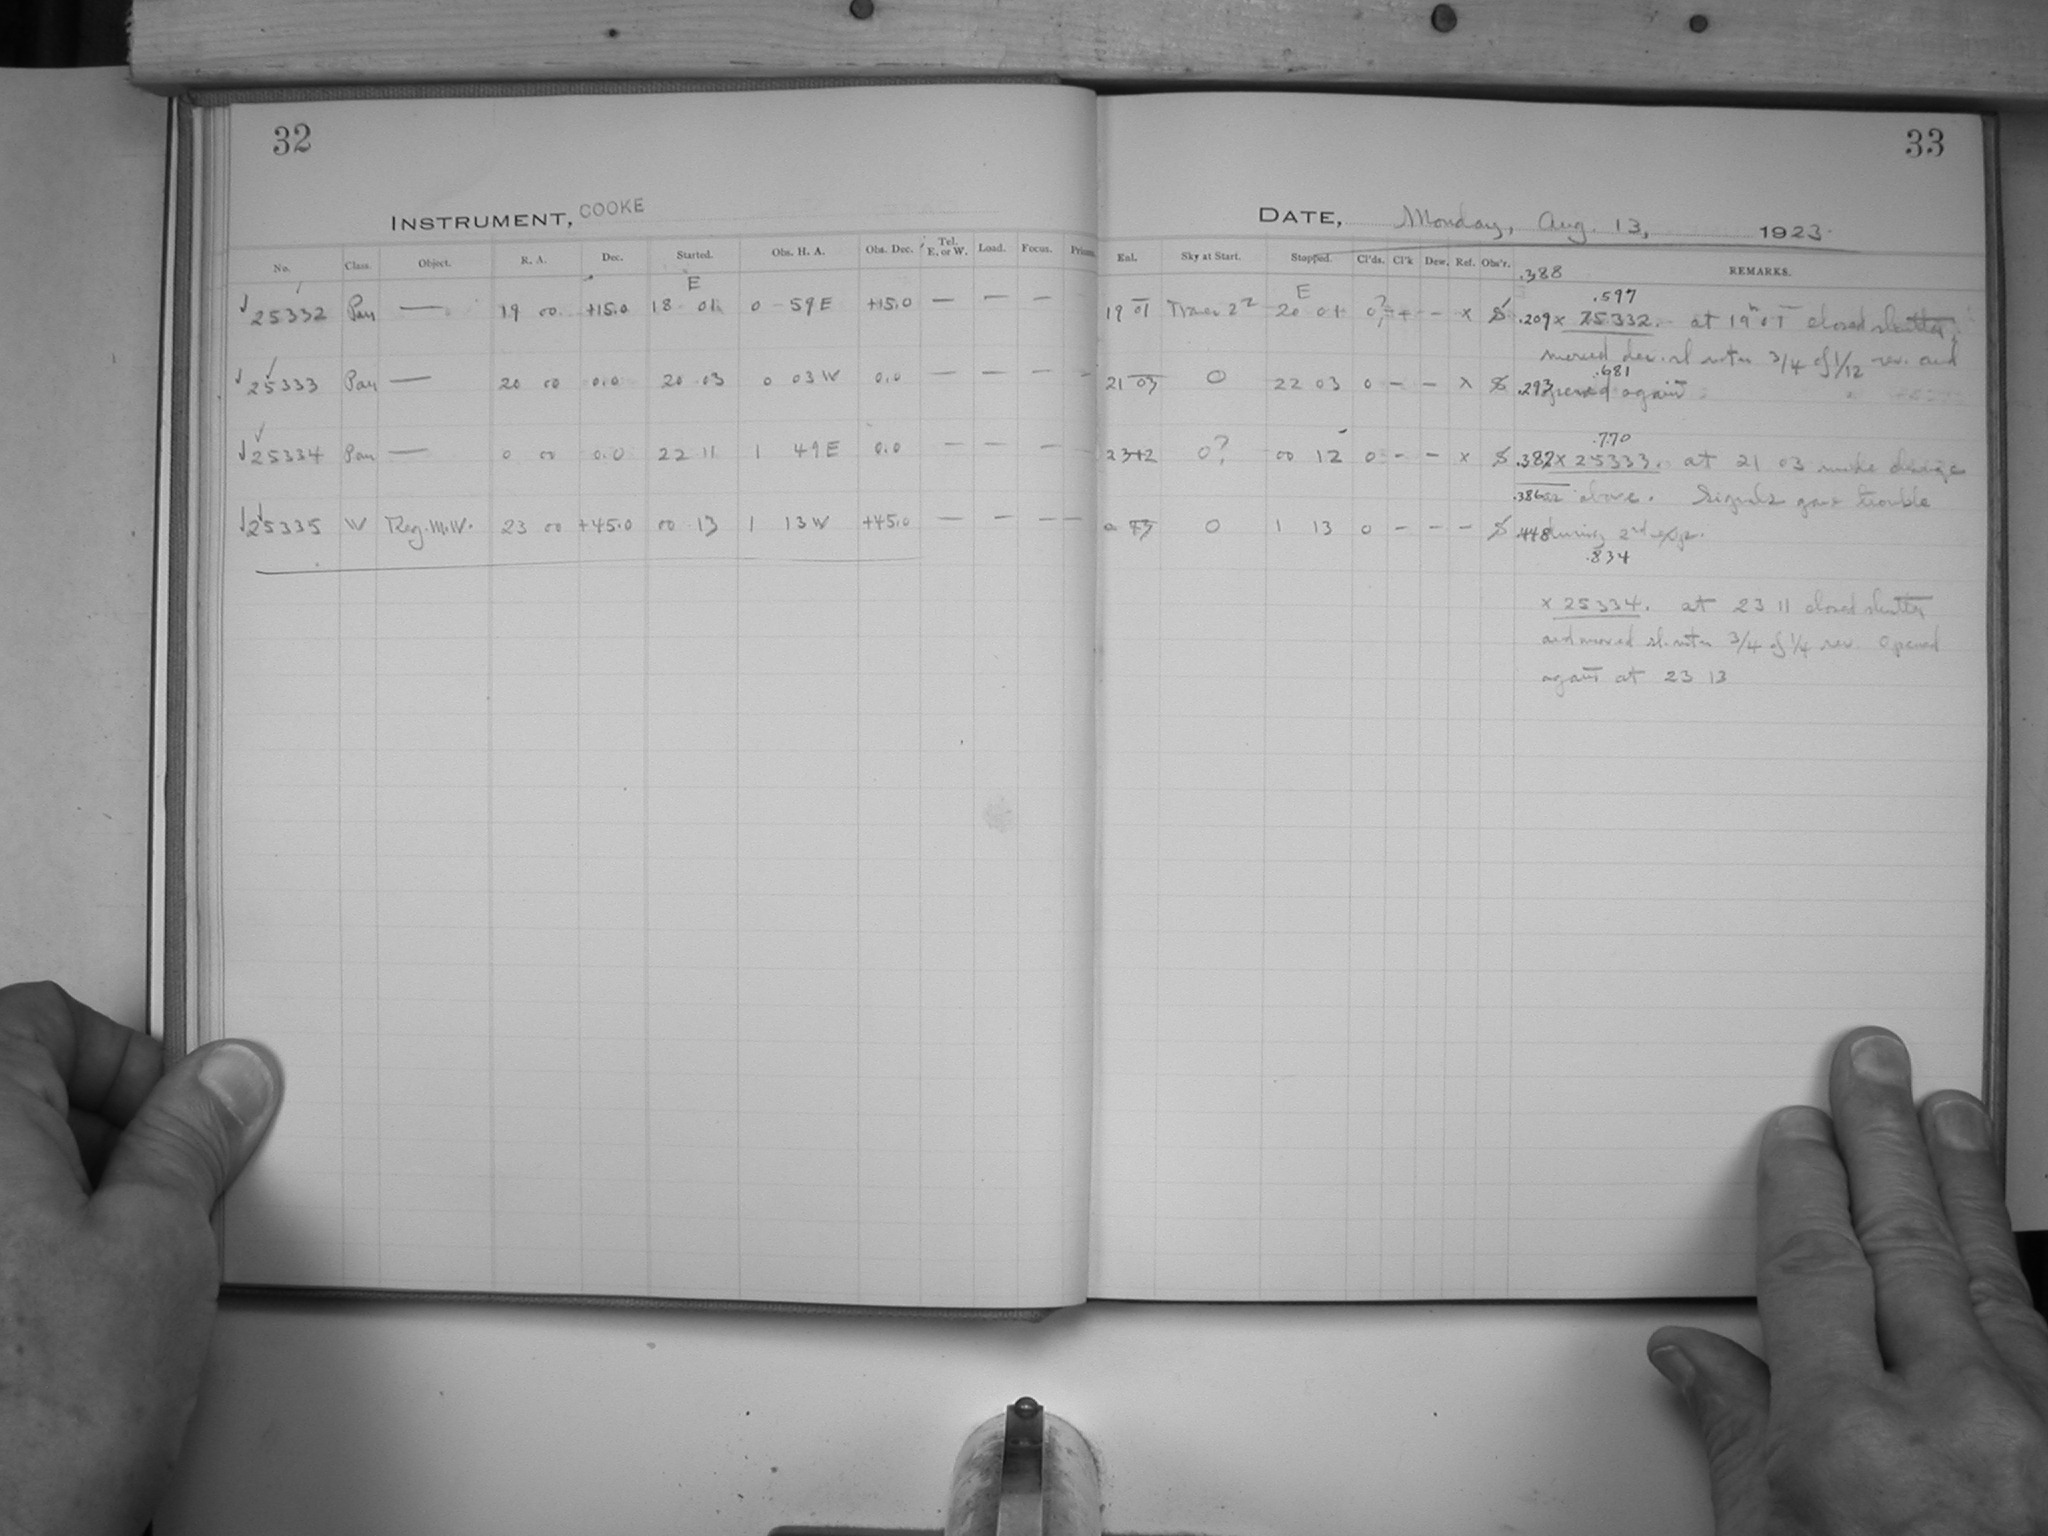 32
INSTRUMENT, COOKE
No. Class. Object. R. A. Dec. Started. Obs. H. A. Obs. Dec. Tel. E. or W. Load. Focus.
E
25332 Pan — 19 00 +15.0 18 01 0 59 E +15.0 — — — —
25333 Pan — 20 00 0.0 20 03 0 03 W 0.0 — — — —
25334 Pan — 0 00 0.0 22 11 1 49 E 0.0 — — — —
25335 W Reg. M.W. 23 00 +45.0 00 13 1 13 W +45.0 — — — —
33
DATE, Monday, Aug. 13, 1923
Exl. Sky at Start. Stopped. Cl'ds. Cl'k Dew. Ref. Obs'r. .388 REMARKS.
E .597
19 01 20 01 0? — x S .209 x 25332. at 19h 01 closed shutter,
moved dec. sl. motn 3/4 of 1/12 rev. and
.681
21 03 0 22 03 0 — — x S .293 opened again
.770
23 12 0? 00 12 0 — — x S .382 x 25333. at 21 03 make change
.386 as above. Signals gave trouble
0 43 0 1 13 0 — — — S .448 during 2nd exp.
.834
x 25334. at 23 11 closed shutter
and moved sl. motn 3/4 of 1/4 rev. Opened
again at 23 13